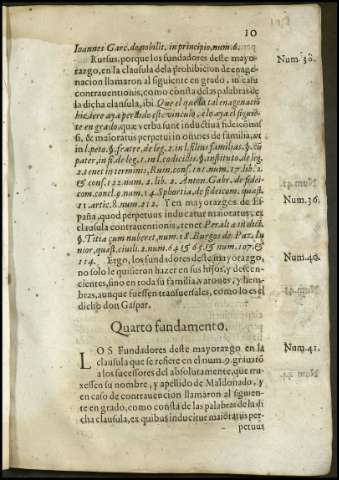 10
Ioannes Garc. de nobilit. in principio, num. 6.
Rursus, porque los fundadores deste mayo-
razgo, en la clausula de la prohibicion de enage-
nacion llamaron al siguiente en grado, in casu
contrauentionis, como consta de las palabras de
la dicha clausula, ibi Que el que la tal enagenació
hiziere aya perdido este vinculo, e lo aya el siguié-
te en grado, quæ verba sunt inductiua fideicomis
si, & maioratus perpetui in omnes de familia, vt
in l. peto. §. fratre, de leg. 2. in l. filius familias. §. cũ
pater, in fi. de leg. 1. in l. codicillis. §. instituto, de leg.
2. tenet in terminis, Ruin. cons. 101. num. 17. lib. 2.
& cons. 122. num. 2. lib. 2. Anton. Gabr. de fidei-
com. concl. 9. num. 14. Sphortia, de fideicom. quæst.
11. artic. 8. num. 212. Y en mayorazgos de Es-
paña, quod perpetuus inducatur maioratus, ex
clausula contrauentionis, tenet Peralta in dict.
§. Titia cum nuberet, num. 18. Burgos de Paz, Iu
nior, quæst. ciuili. 2. num. 64 & 65. & num. 107. &
114. Ergo, los fundadores deste mayorazgo,
no solo le quisieron hazer en sus hijos, y descen-
cientes, sino en toda su familia varones, y hem-
bras, aunque fuessen transuersales, como lo es el
dicho don Gaspar.
Num. 38.
Num. 36.
Num. 40.
Quarto fundamento.
LOS Fundadores deste mayorazgo en la
clausula que se refiere en el num. 9. grauaró
a los sucessores del absolutamente, que tru-
xessen su nombre, y apellido de Maldonado, y
en caso de contrauencion llamaron al siguien-
te en grado, como consta de las palabras de la di
cha clausula, ex quibus inducitur maioratus per-
petuus
Num. 41.